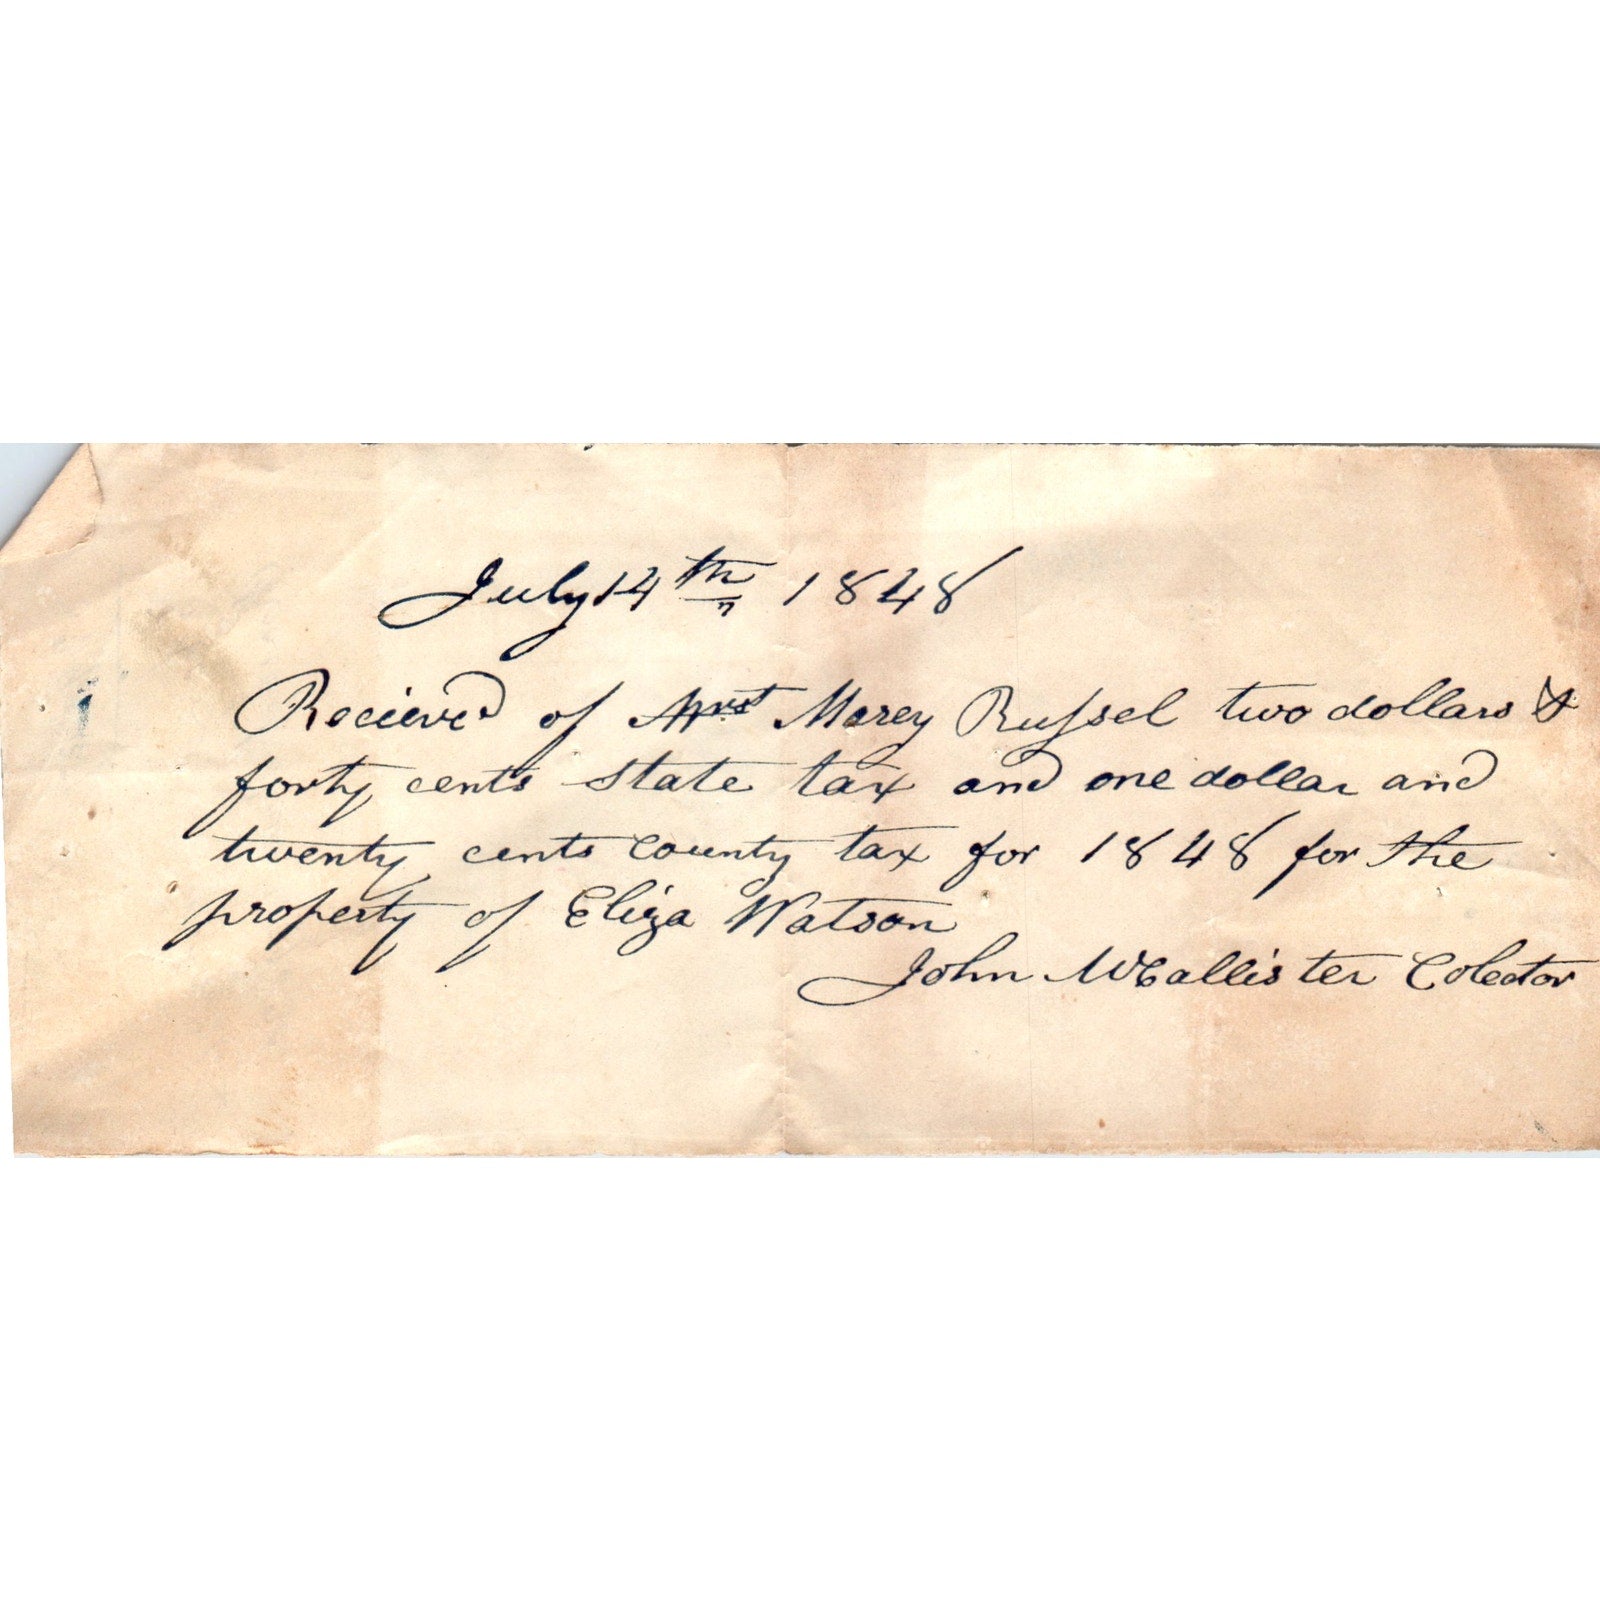 July 14th 1848
Recieved of Mrst Marey Russel two dollars &
forty cents state tax and one dollar and
twenty cents county tax for 1848 for the
property of Eliza Watson
John McCallister Colector